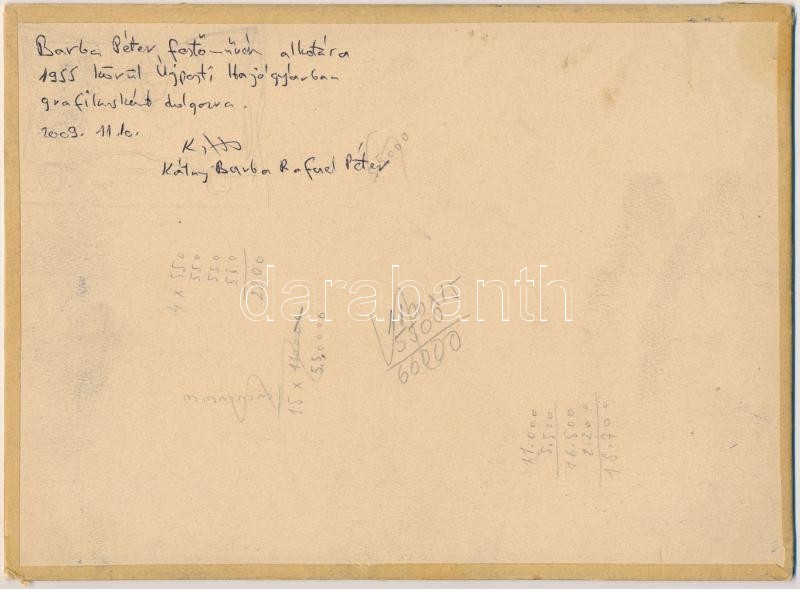 Barba Péter festőművész alkotása
1955 körül Újpesti Hajógyárban
grafikusként dolgozva.
2009. 11. 10.
Kátay Barba Rafael Péter
55000
4 x 550
550
550
550
2200
15 x 11000
55,0000
1100
5500
60000
darabanth
11.000
5.500
16.500
2.200
18.700